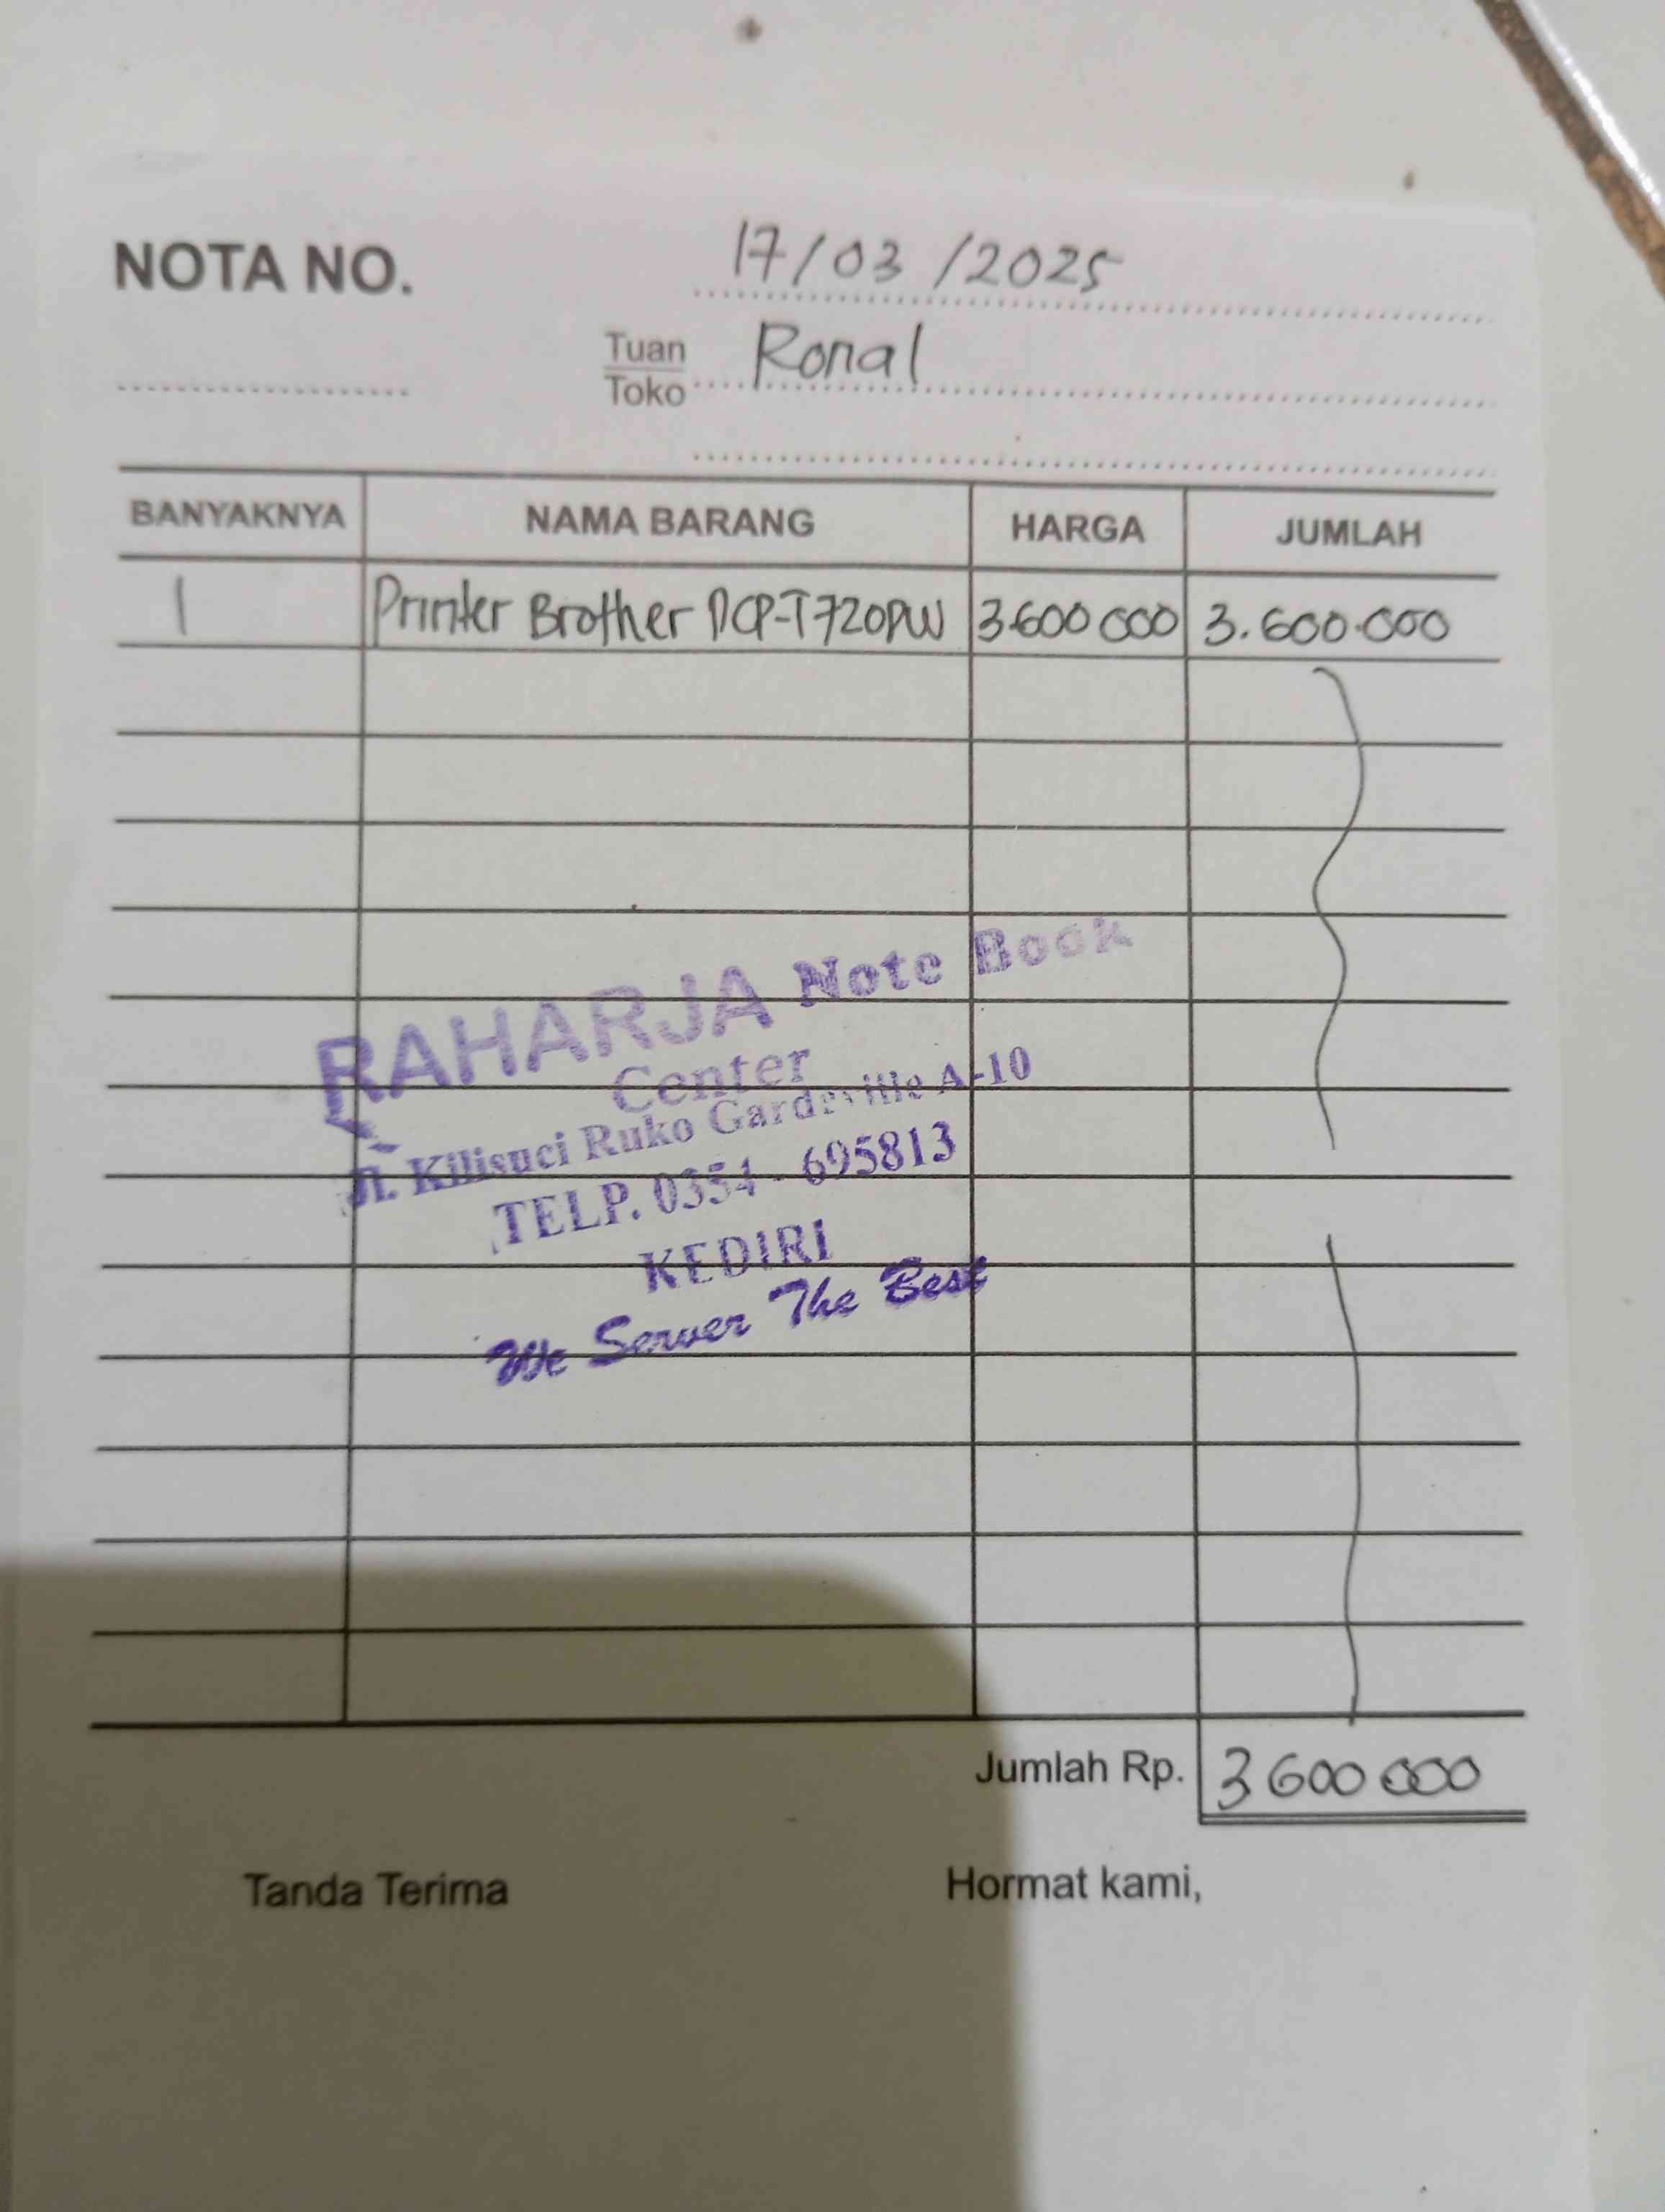 NOTA NO.
17/03/2025
Tuan
Toko
Ronal
BANYAKNYA NAMA BARANG HARGA JUMLAH
1 Printer Brother DCP-T720DW 3.600 000 3.600.000
RAHARJA Note Book
Center
Jl. Kilisuci Ruko Gardeville A-10
TELP. 0354 - 695813
KEDIRI
We Server The Best
Jumlah Rp. 3 600 000
Tanda Terima Hormat kami,